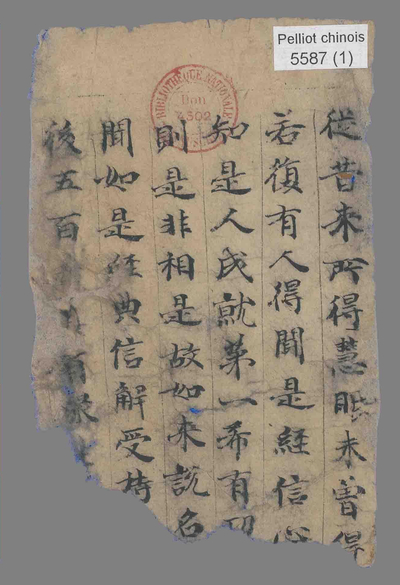 Pelliot chinois
5587 (1)
BIBLIOTHÈQUE NATIONALE
Don
4502
從昔來所得慧眼未曾得
若復有人得聞是經信心
知是人成就第一希有功
則是非相是故如來說名
聞如是經典信解受持
後五百有眾